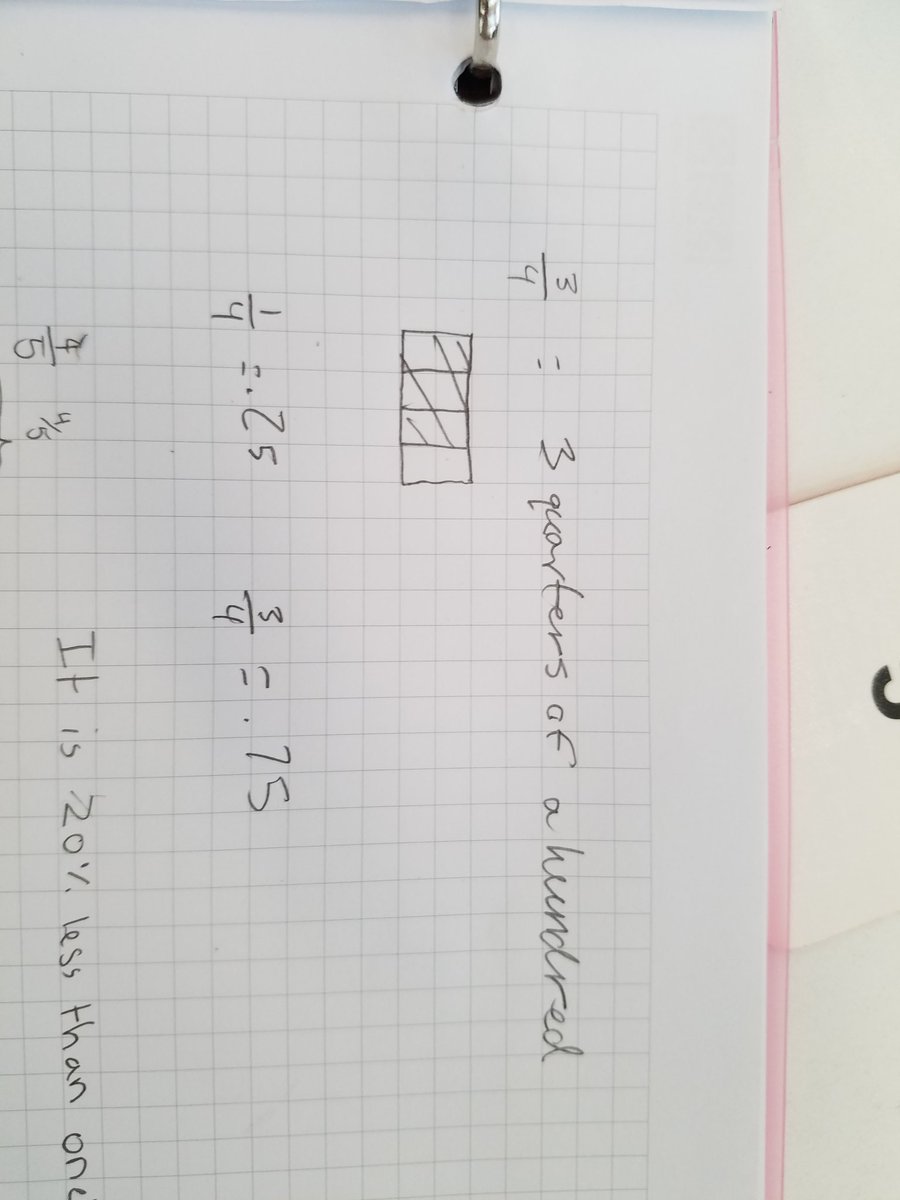 3/4 = 3 quarters of a hundred
1/4 = .25 3/4 = .75
4/5 4/5 It is 20% less than one